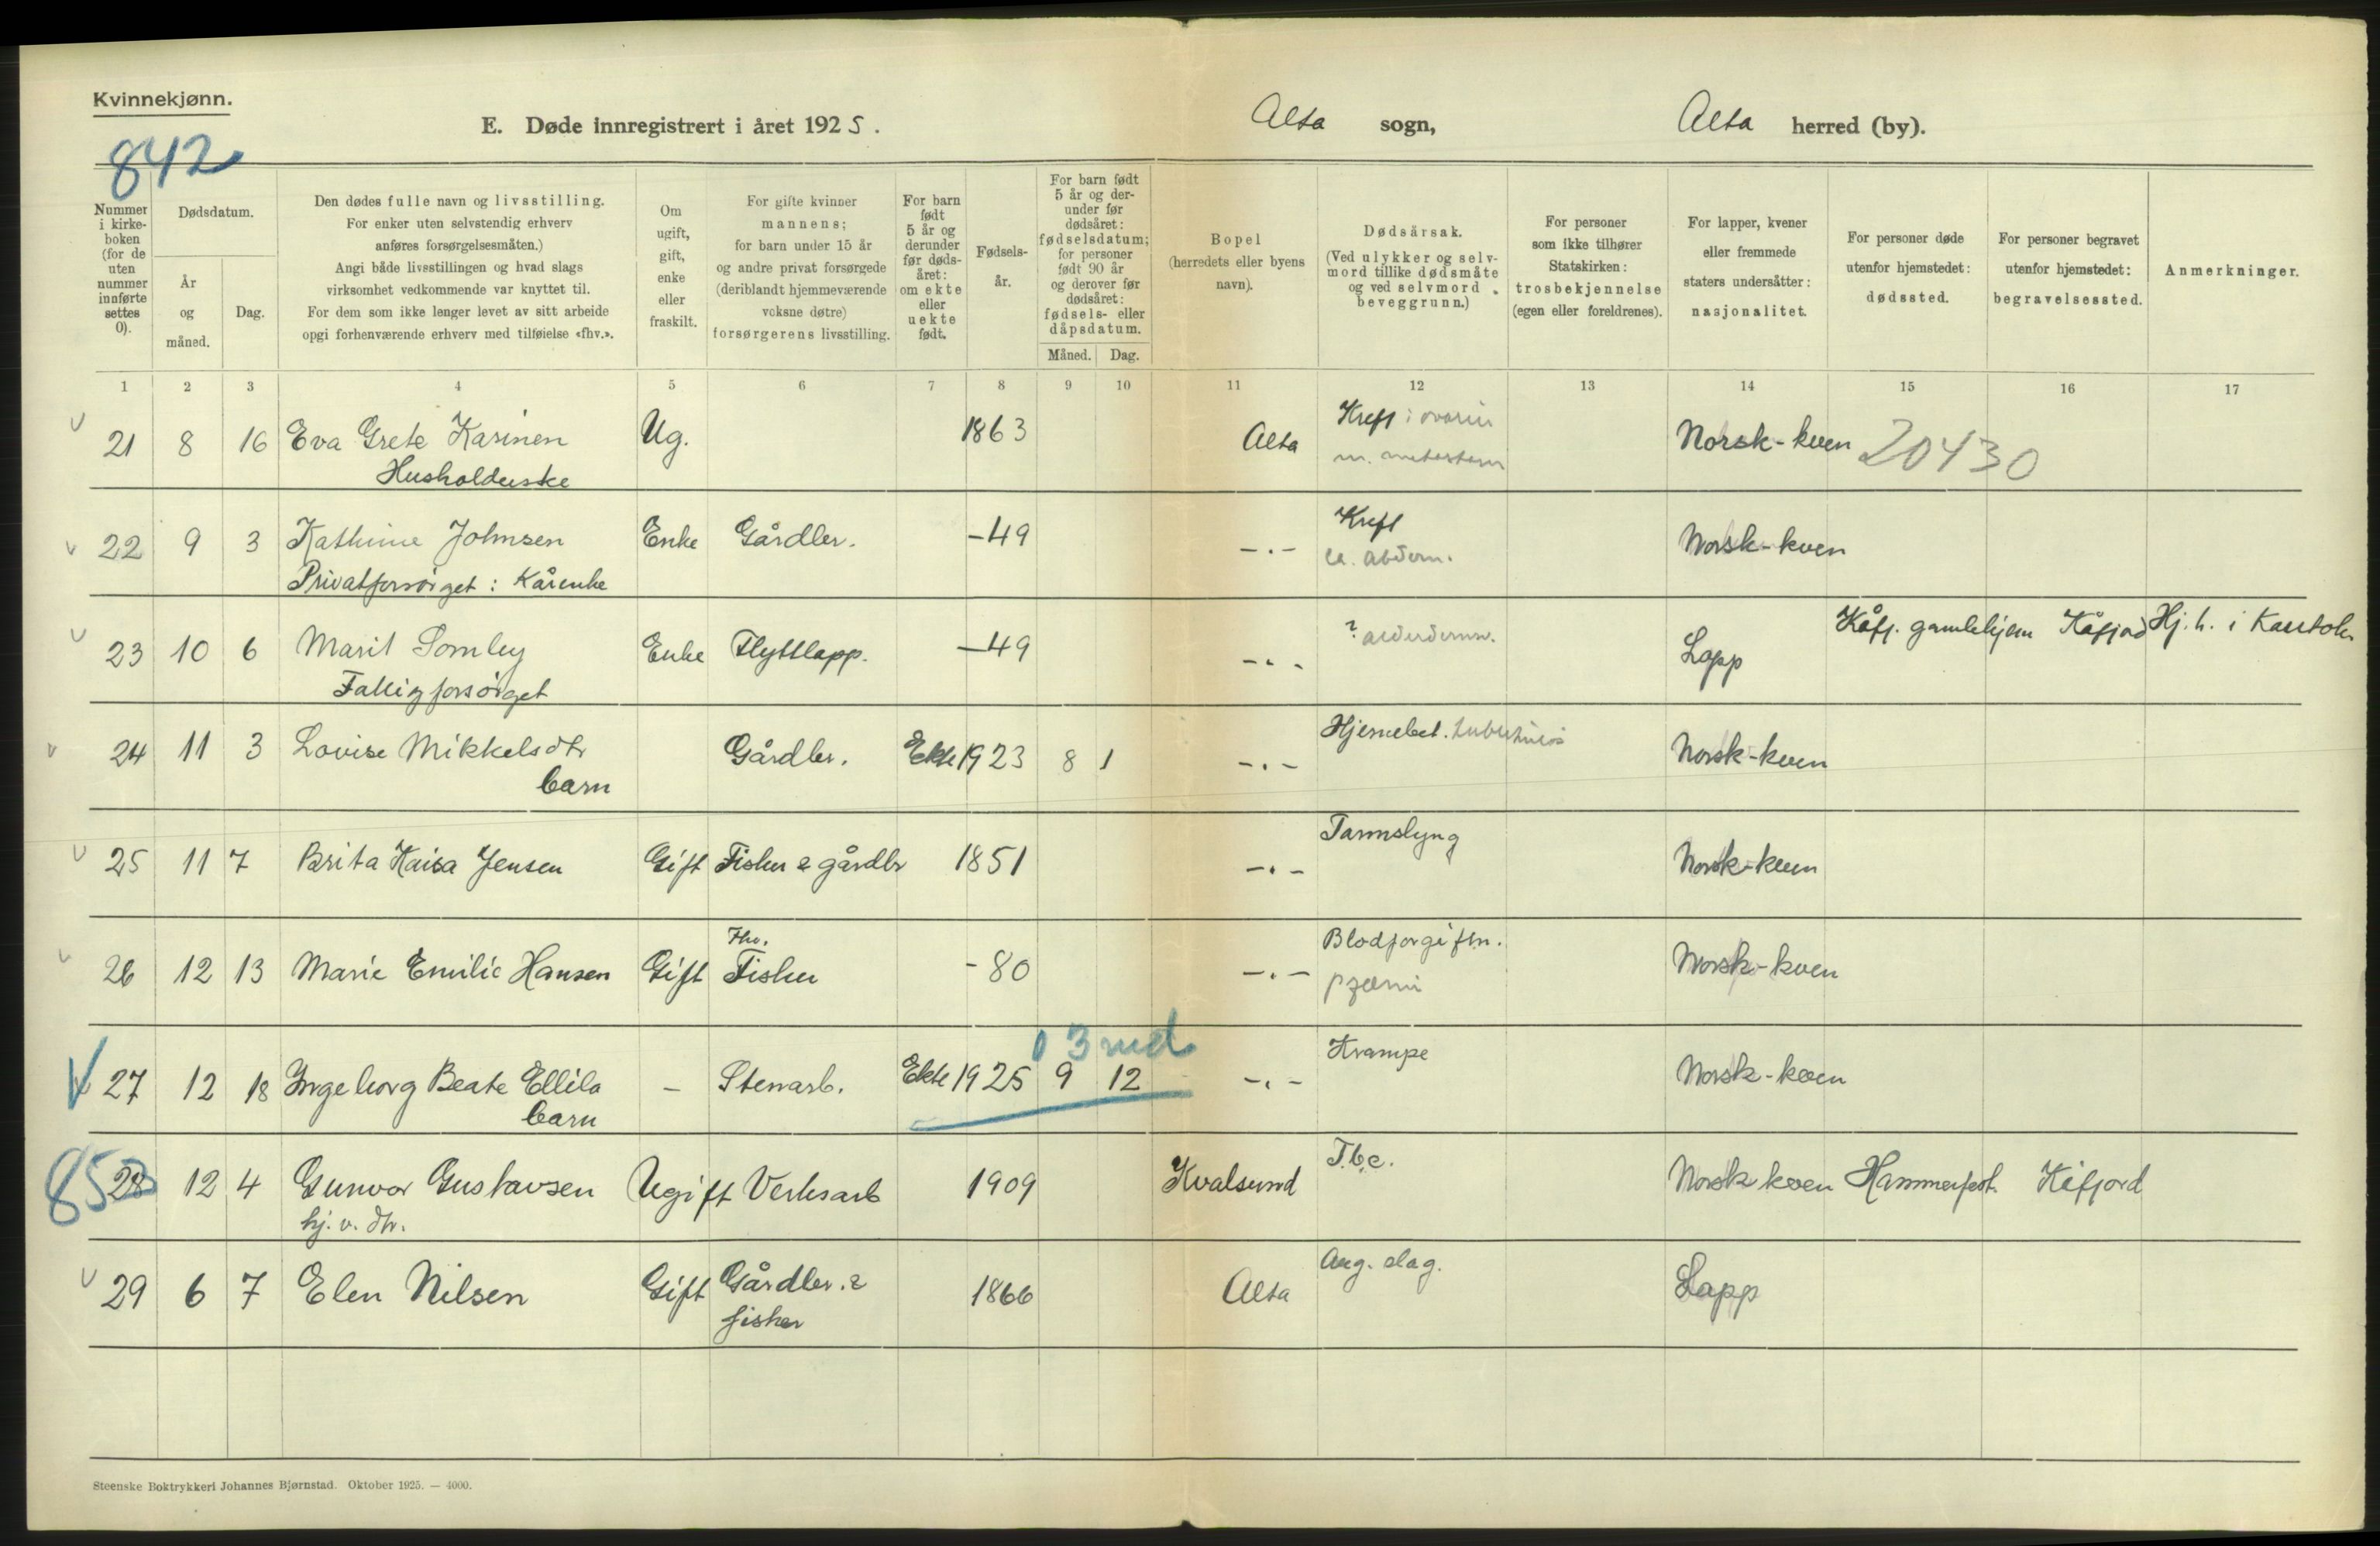 Kvinnekjønn.
E. Døde innregistrert i året 1925.
Alta sogn,
Alta herred (by).
842
Nummer i kirke- boken (for de uten nummer innførte settes 0).
Dødsdatum.
År og måned.
Dag.
Den dødes fulle navn og livsstilling.
For enker uten selvstendig erhverv
anføres forsørgelsesmåten.)
Angi både livsstillingen og hvad slags
virksomhet vedkommende var knyttet til.
For dem som ikke lenger levet av sitt arbeide
opgi forhenværende erhverv med tilføielse «fhv.».
Om ugift, gift, enke eller fraskilt.
For gifte kvinner
mannens;
for barn under 15 år
og andre privat forsørgede
(deriblandt hjemmeværende
voksne døtre)
forsørgerens livsstilling.
For barn født 5 år og derunder før døds- året: om ekte eller uekte født.
Fødsels- år.
For barn født 5 år og der- under før dødsåret: fødselsdatum; for personer født 90 år og derover før dødsåret: fødsels- eller dåpsdatum.
Måned. Dag.
Bopel
(herredets eller byens
navn).
Dødsårsak.
(Ved ulykker og selv-
mord tillike dødsmåte
og ved selvmord
beveggrunn.)
For personer
som ikke tilhører
Statskirken:
trosbekjennelse
(egen eller foreldrenes).
For lapper, kvener
eller fremmede
staters undersåtter:
nasjonalitet.
For personer døde
utenfor hjemstedet:
dødssted.
For personer begravet
utenfor hjemstedet:
begravelsessted.
Anmerkninger.
1 2 3 4 5 6 7 8 9 10 11 12 13 14 15 16 17
21 8 16 Eva Grete Karinen Ug. 1863 Alta Kreft i ovarii Norsk-kven 20430
Husholderske
22 9 3 Kathrine Johnsen Enke Gårdbr. -49 -.- Kreft Norsk-kven
Privatforsørget: Kårenke ca. abdom.
23 10 6 Marit Somby Enke Flyttlapp. -49 -.- ? Lapp Kåfj. gamlehjem Kåfjord Hj.h. i Kautok.
Fattigforsørget
24 11 3 Lovise Mikkelsdtr Gårdbr. Ekte 1923 8 1 -.- Hjernebet. Norsk-kven
barn
25 11 7 Brita Kaisa Jensen Gift Fisker & gårdbr 1851 -.- Tarmslyng Norsk-kven
26 12 13 Marie Emilie Hansen Gift Fhv. Fisker -80 -.- Blodforgiftn. Norsk-kven
pyæmi
0 3 md
27 12 18 Ingeborg Beate Ellila - Stenarb. Ekte 1925 9 12 -.- Krampe Norsk-kven
barn
852
28 12 4 Gunvor Gustavsen Ugift Verksarb 1909 Kvalsund T.b.c. Norsk kven Hammerfest. Kåfjord
hj. v. dtr.
29 6 7 Elen Nilsen Gift Gårdbr. & 1866 Alta Ang. slag. Lapp
fisker
Steenske Boktrykkeri Johannes Bjørnstad. Oktober 1925. — 4000.